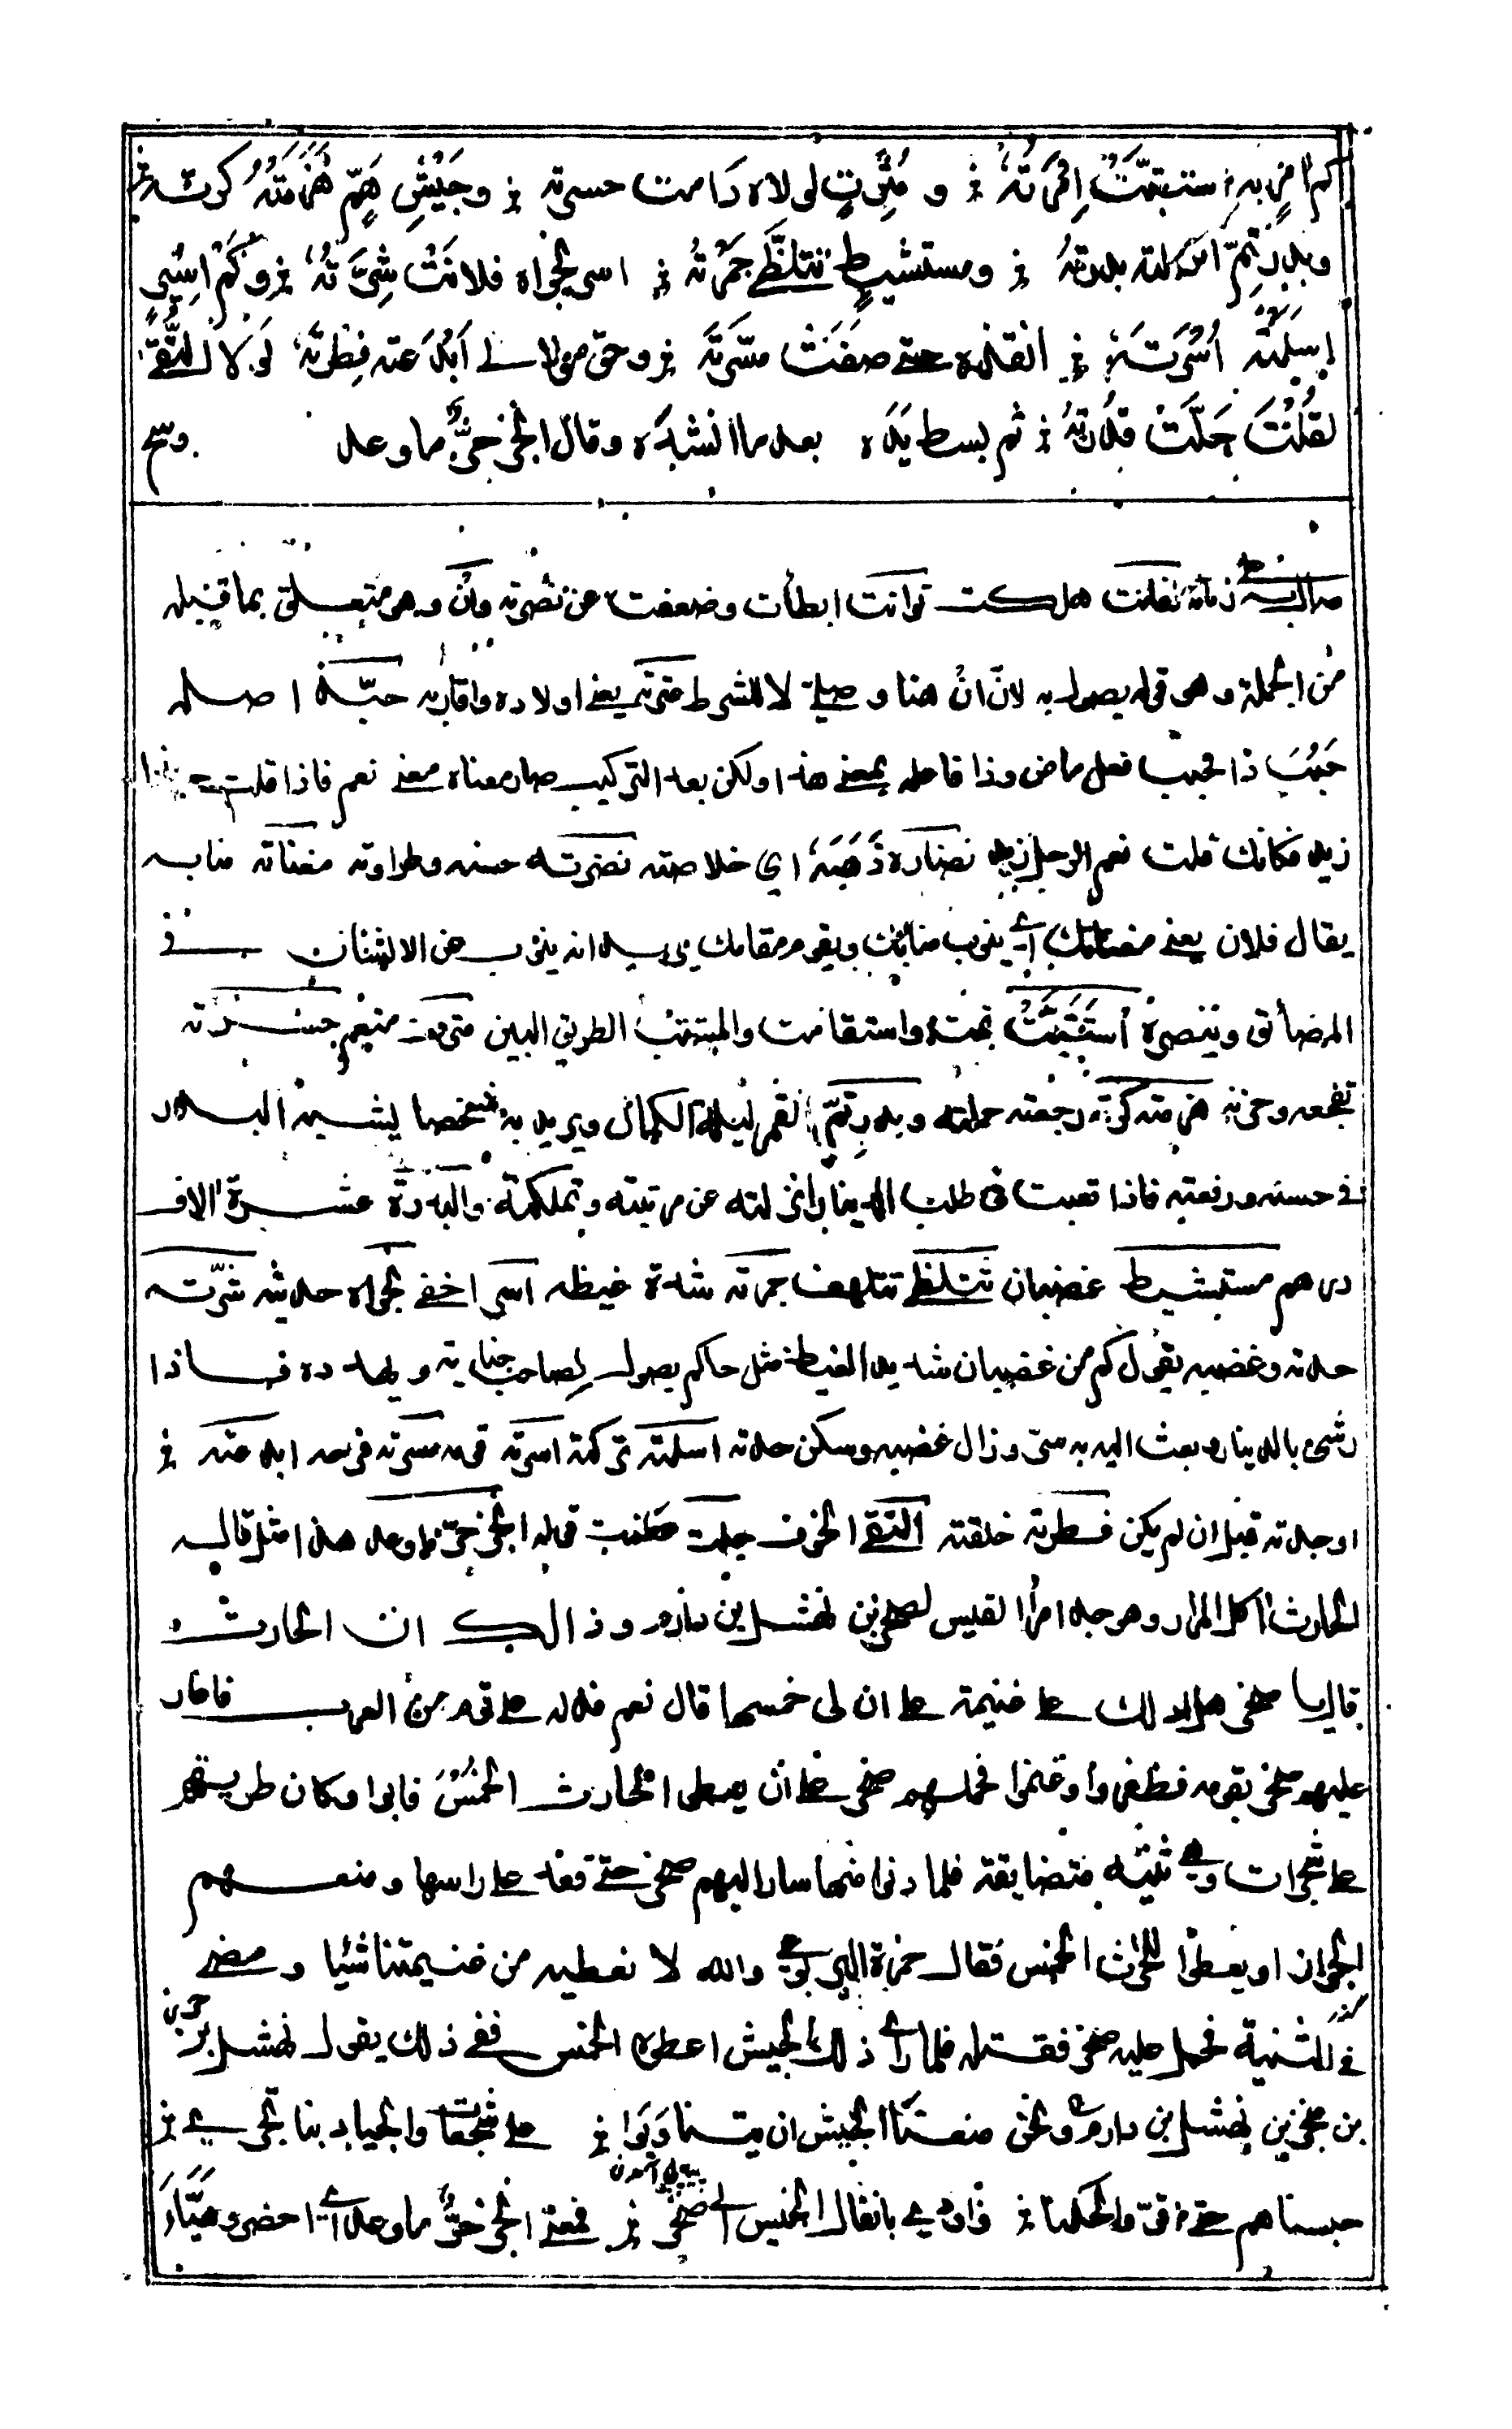 كم امر به استتبت امرته و مترف لولاه دامت حسرته وجيش هم هزمته كرته
وبدر تم انزلته بدرته ومستشيط تتلظى جمرته اسر نجواه فلانت شرته وكم اسير
اسلمته اسرته انقذه حتى صفت مسرته وحق مولى ابدعته فطرته لولا التقى
لقلت جلت قدرته ثم بسط يده بعد ما انشده وقال انجز حر ما وعد وسح
زمانه تفانت هلكت توانت ابطأت وضعفت عن نصرته وان وهو متعلق بما قبله
من الجملة وهو قوله يصول به لان ان هنا وصلية لا للشرط عترته يعني اولاده واقاربه حبذا اصله
حبب ذا فحبب فعل ماض وذا فاعله بمعنى هذا ولكن بعد التركيب صار معناه معنى نعم فاذا قلت حبذا
زيد فكانك قلت نعم الرجل زيد نضاره ذهبه اي خلاصته نضرته حسنه وطراوته مغناته منابه
يقال فلان يغني مغناتك اي ينوب منابك ويقوم مقامك يريد انه ينوب عن الانسان في
المضائق وينصره استتبت تمت واستقامت والمستتب الطريق البين مترف متنعم حسرته
تفجعه وحزنه هزمته كرته رجعته حملته وبدر تم القمر ليلة الكمال ويريد به شخصا يشبه البدر
في حسنه ورفعته فاذا تعبت في طلب الدينار انزلته عن مرتبته وتملكته والبدرة عشرة الاف
درهم مستشيط غضبان تتلظى تتلهف جمرته شدة غيظه اسر اخفى نجواه حديثه شرته
حدته وغضبه يقول كم من غضبان شديد الغيظ مثل حاكم يصول لصاحب جناية ويهدده فاذا
رشي بالدينار وبعث اليه به سرى وزال غضبه وسكن حدته اسلمته تركته اسرته قومه مسرته فرحه ابدعته
اوجدته قبل ان لم يكن فطرته خلقته التقى الخوف جلت عظمت قوله انجز حر ما وعد هذا مثل قاله
الحارث اكل المرار وهو جد امرأ القيس لصخر بن نهشل بن دارم وذالك ان الحارث
قال يا صخر هل ادلك على غنيمة على ان لي خمسها قال نعم فدله على قوم من العرب فاغار
عليهم صخر بقومه فظفروا وغنموا فحملهم صخر على ان يعطى الحارث الخمس فابوا وكان طريقهم
على شجرات وهي ثنيه متضايقة فلما دنوا منها سار اليهم صخر حتى قعد على راسها ومنعهم
الجواز او يعطوا للحارث الخمس فقال حمزة اليربوعي والله لا نعطيه من غنيمتنا شئيا ومضى
في الثنية فحمل عليه صخر فقتله فلما راى ذلك الجيش اعطوه الخمس ففي ذلك يقول نهشل بن حري
بن صخر بن نهشل بن دارم ونحن منعنا الجيش ان يتناوبوا على شجعات والجياد بنا تجري
حبسناهم حتى اقروا بحكمنا وادي بانفال الخميس الى صخر فمعنى انجز حر ما وعد اي احضر وهيأ